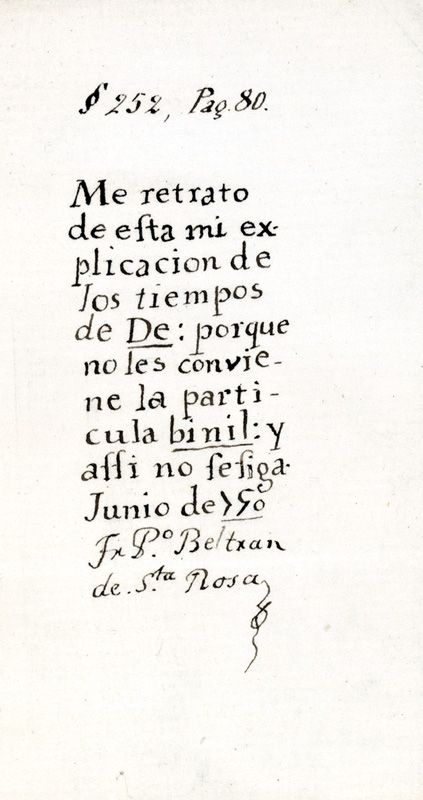 § 252, Pag. 80.
Me retrato
de eſta mi ex-
plicacion de
los tiempos
de De: porque
no les convie-
ne la parti-
cula binil: y
aſſi no ſe ſiga.
Junio de 750
Fr. P.º Beltran
de S.ta Rosa